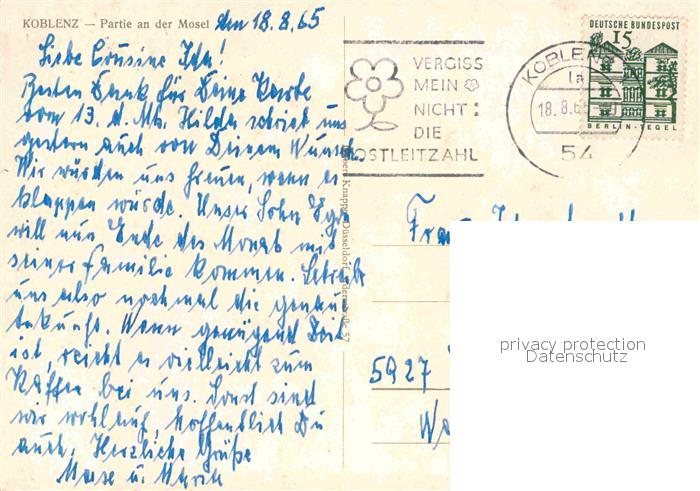 KOBLENZ — Partie an der Mosel
den 18.8.65
Liebe Cousine Ida!
Besten Dank für Deine Karte
vom 13. d. Mts. Hilda schrieb uns
gestern auch von Deinem Wunsch.
Wir würden uns freuen, wenn es
klappen würde. Unser Sohn
will nun Ende des Monat mit
seiner Familie kommen. Schreibe
uns also nochmal die genaue
Ankunft. Wenn genügend Zeit
ist, reicht es vielleicht zum
Kaffee bei uns. Sonst sind
wir wohlauf, hoffentlich Du
auch. Herzliche Grüße
u.
VERGISS
MEIN
NICHT:
DIE
POSTLEITZAHL
KOBLENZ
1a
18.8.6
54
DEUTSCHE BUNDESPOST
15
BERLIN-TEGEL
Knapp Düsseldorf 57
5927
privacy protection
Datenschutz